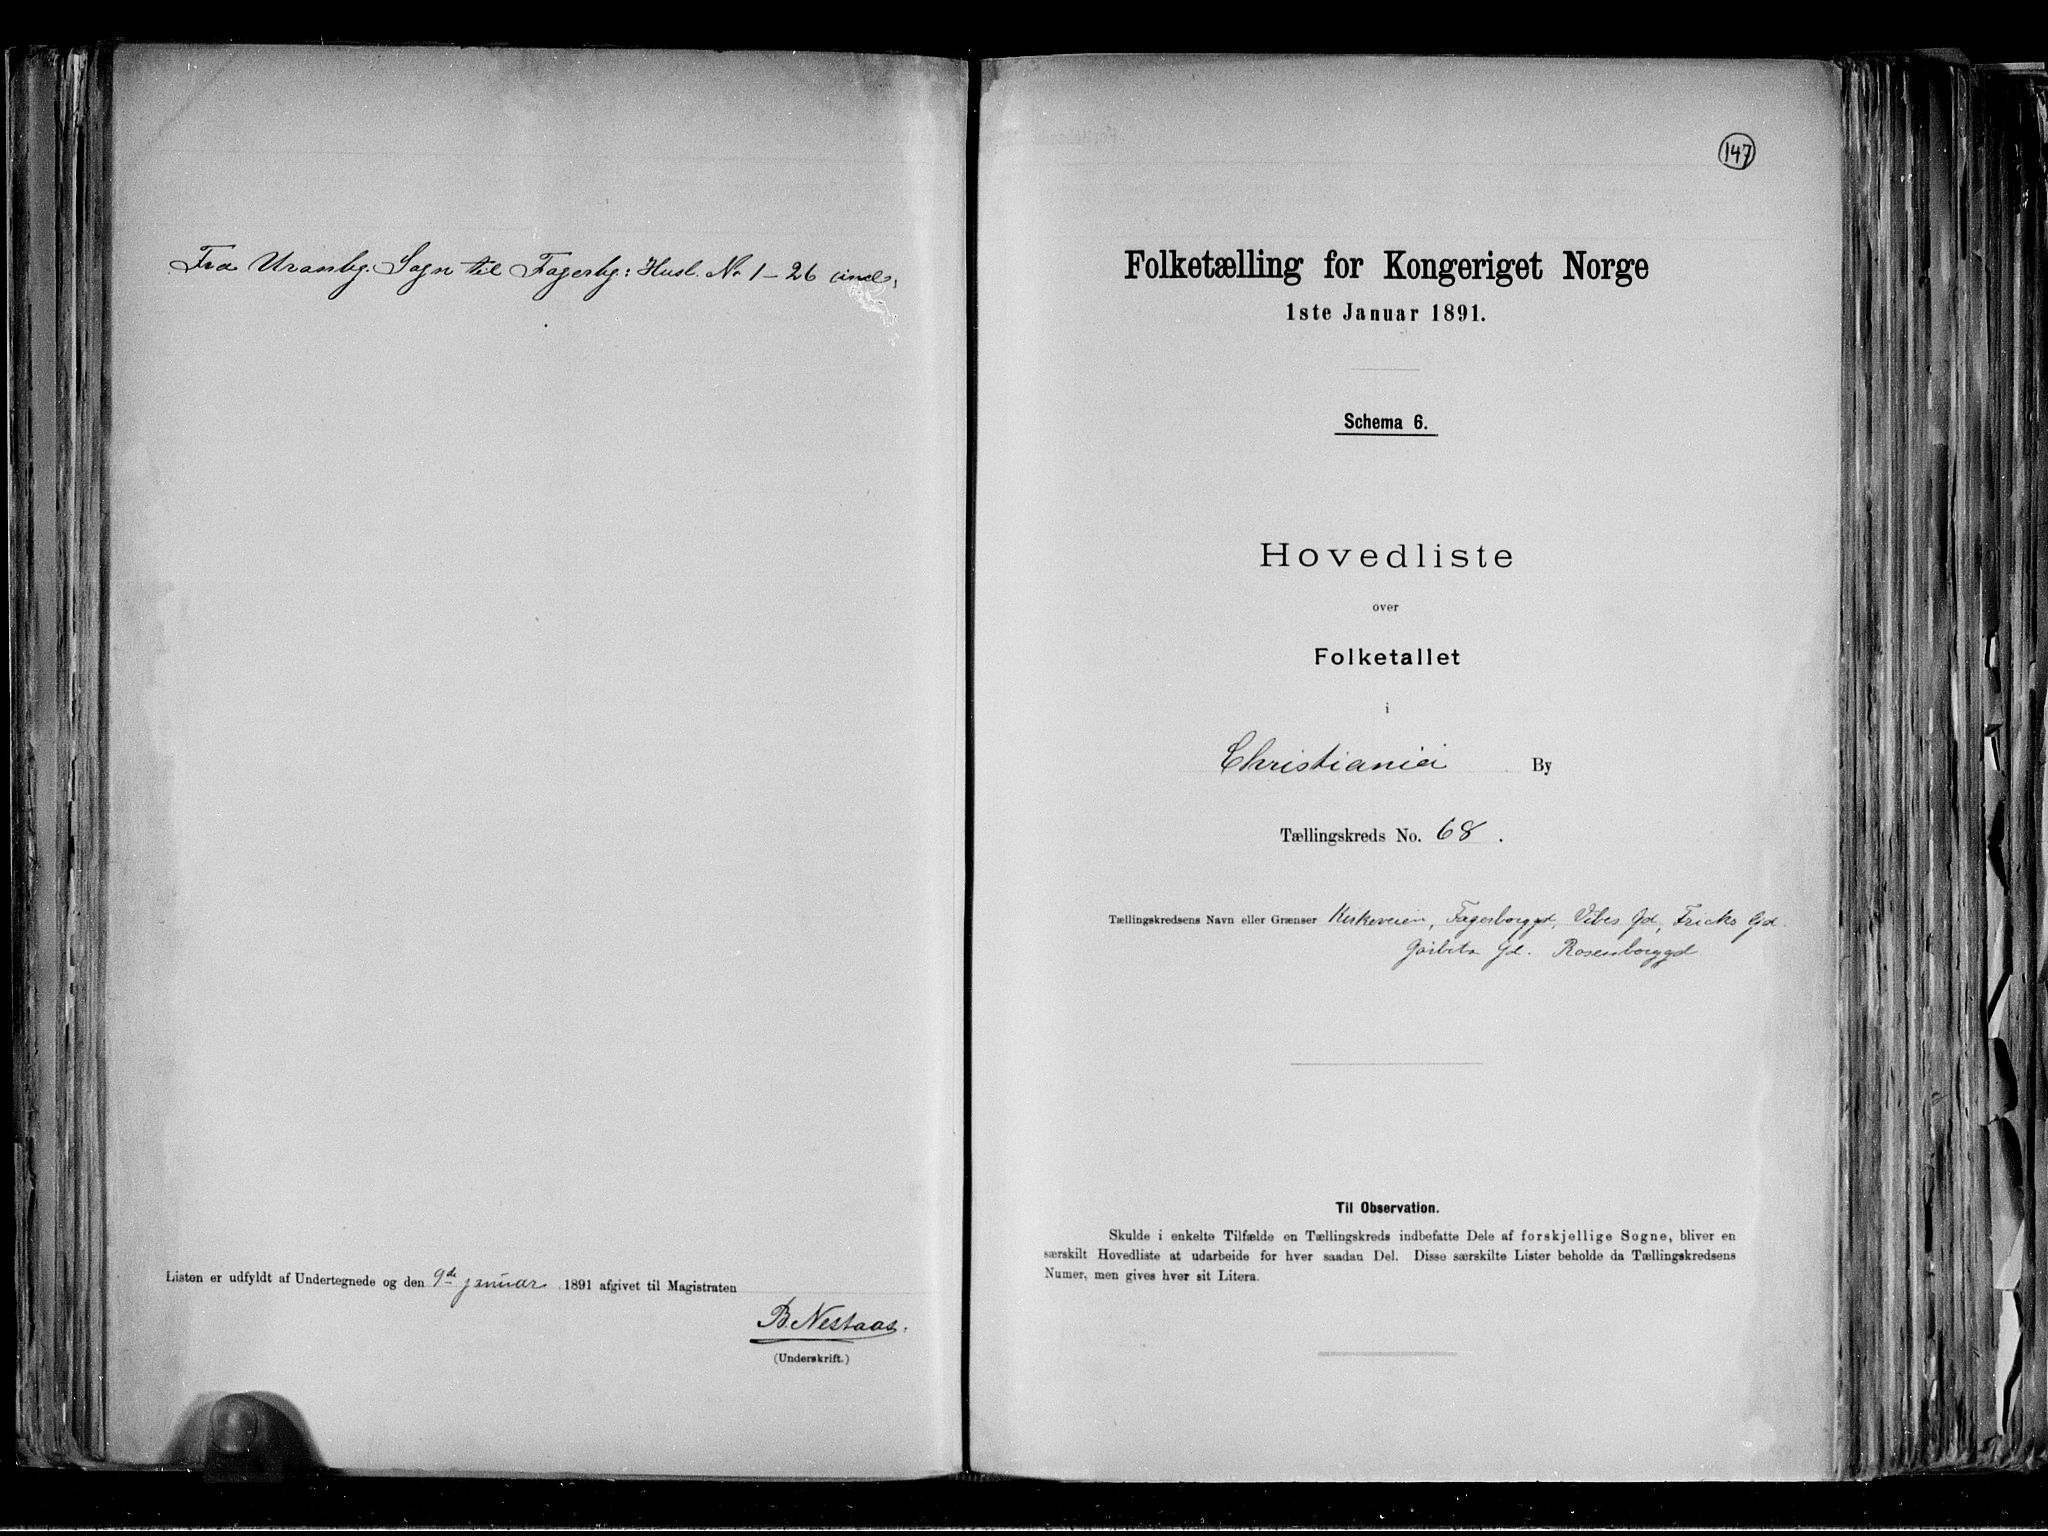 Fra Uranbg. Sogn til Fagerbg: Husl. No 1 – 26 incl.
Listen er udfyldt af Undertegnede og den 9de januar 1891 afgivet til Magistraten
B. Nestaas.
(Underskrift.)
147
Folketælling for Kongeriget Norge
1ste Januar 1891.
Schema 6.
Hovedliste
over
Folketallet
i
Christiania By
Tællingskreds No. 68.
Tællingskredsens Navn eller Grænser Kirkeveien, Fagerborggd, Vibes Gd, Fricks Gd.
Gd. Rosenborggd
Til Observation.
Skulde i enkelte Tilfælde en Tællingskreds indbefatte Dele af forskjellige Sogne, bliver en
særskilt Hovedliste at udarbeide for hver saadan Del. Disse særskilte Lister beholde da Tællingskredsens
Numer, men gives hver sit Litera.